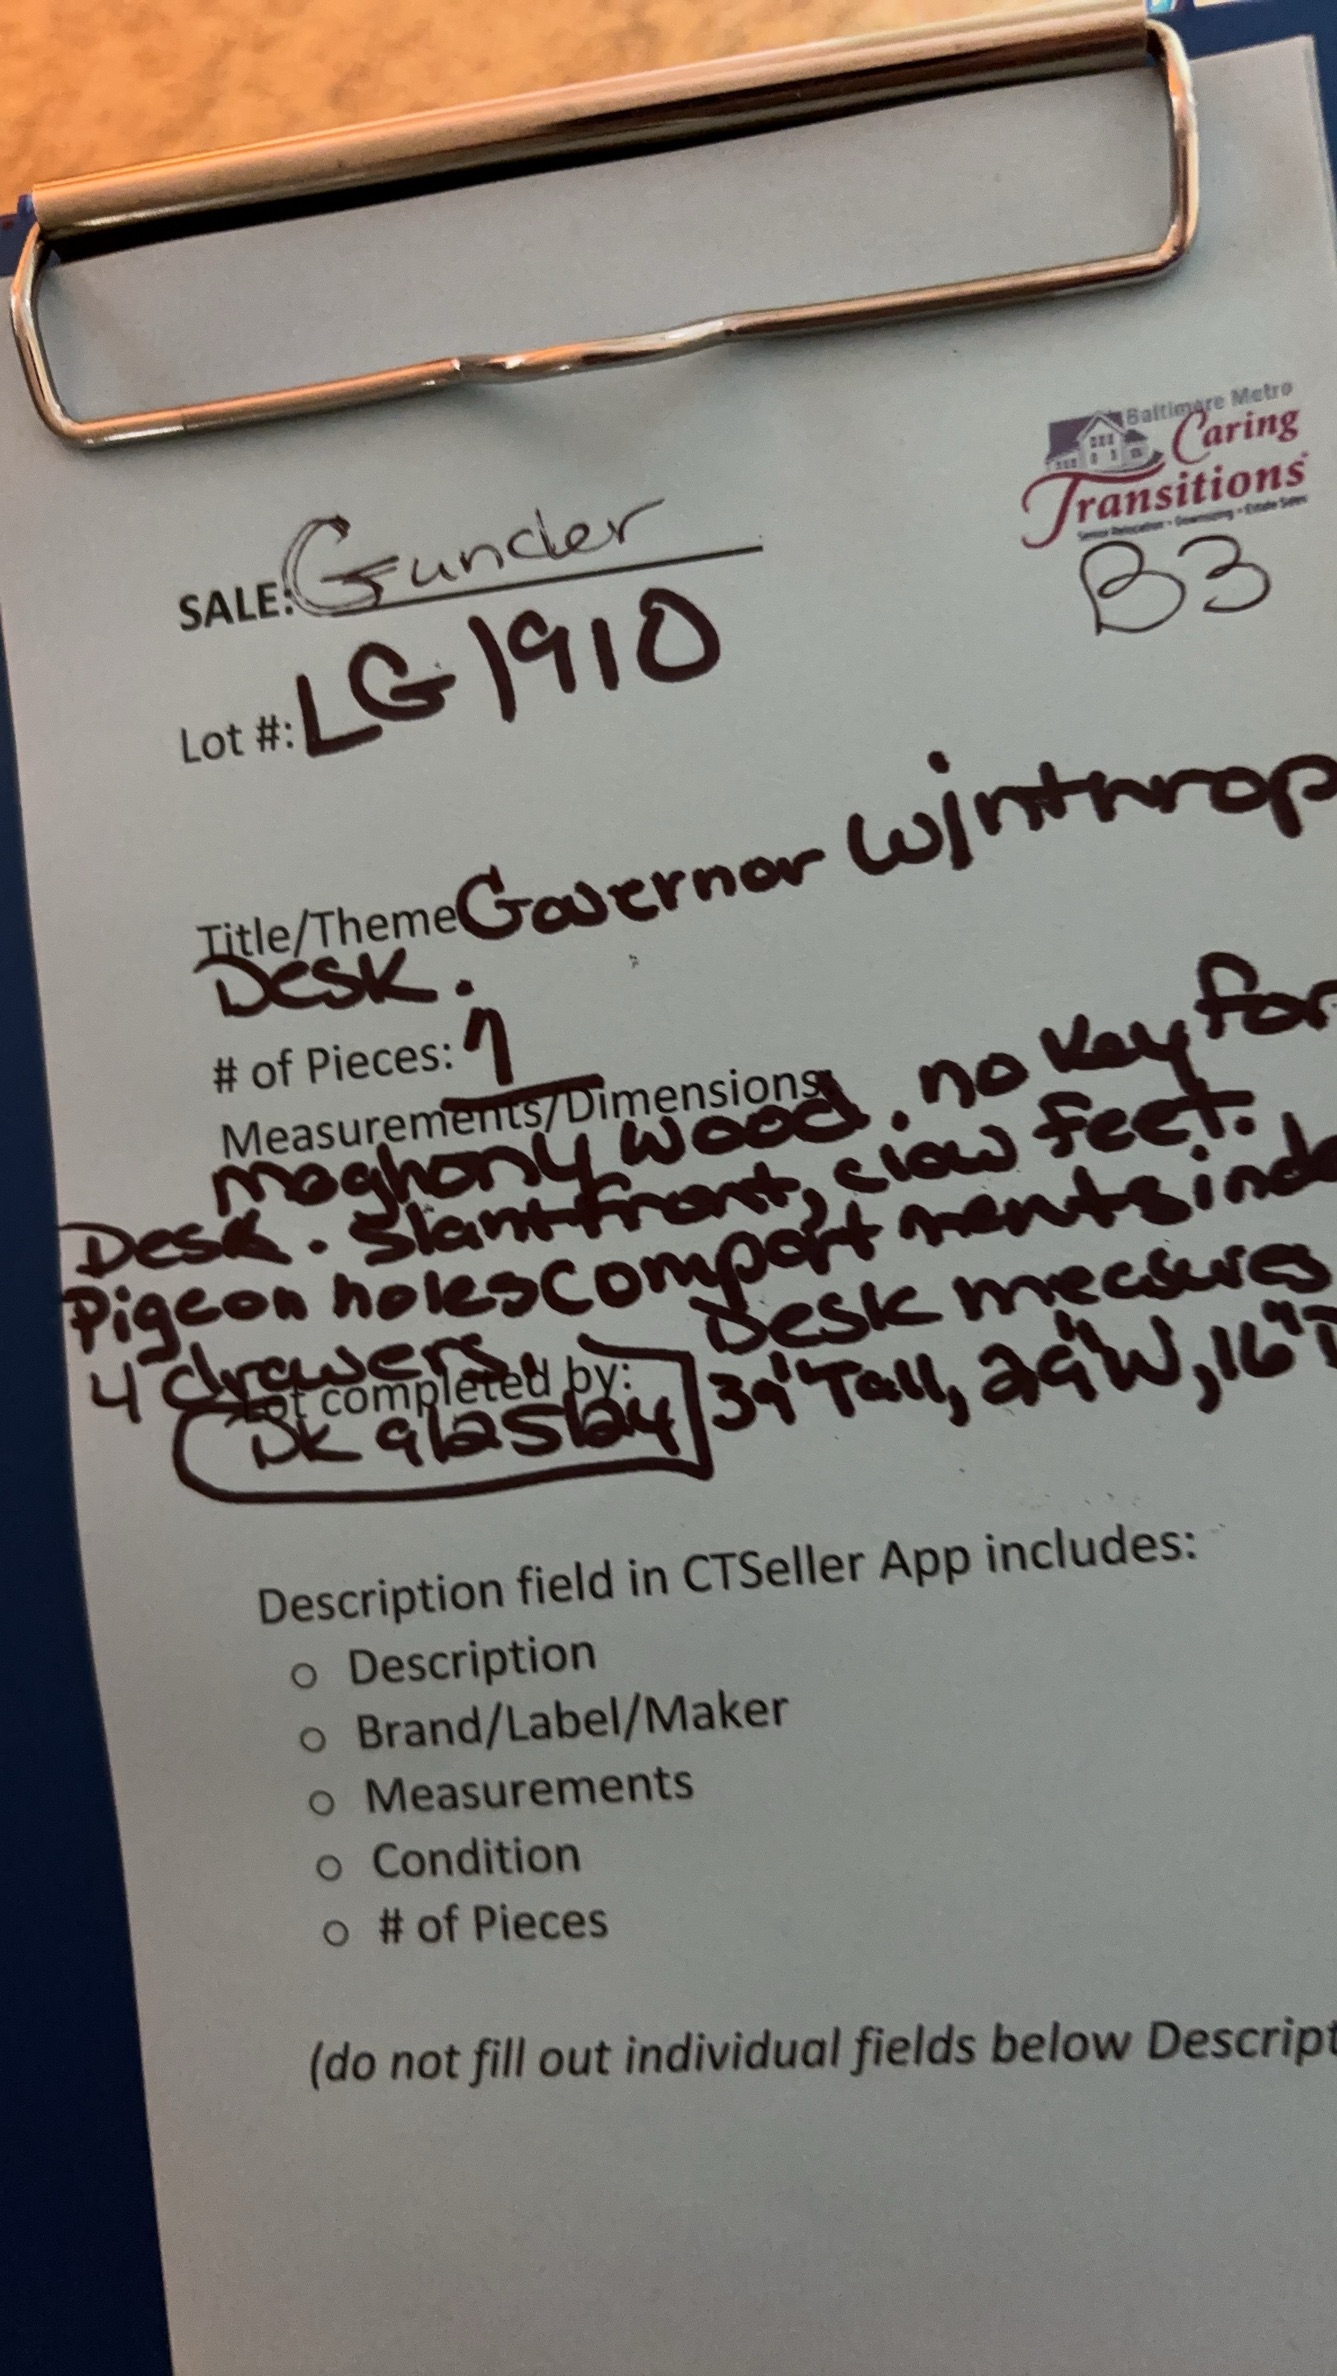 Baltimore Metro
Caring
Transitions
Senior Relocation • Downsizing • Estate Sales
B3
SALE: Gunder
Lot #: LG 1910
Title/Theme Governor Winthrop
Desk.
# of Pieces: 1
Measurements/Dimensions:
maghony wood. no key for
Desk. Slant front, claw feet.
Pigeon holes compartments insd
4 drawers. Desk measures
Lot completed by: 39" Tall, 29"W, 16"D
DK 9/25/24
Description field in CTSeller App includes:
o Description
o Brand/Label/Maker
o Measurements
o Condition
o # of Pieces
(do not fill out individual fields below Descript